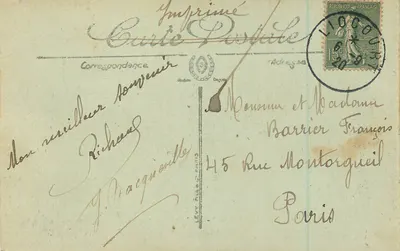 Imprimé
Carte Postale
Correspondance
Adresse
LIOCOURT
6 - 9
20
Mon meilleur souvenir
Richard
J. Jacqueville
Monsieur et Madame
Barrier François
45 Rue Montorgueil
Paris